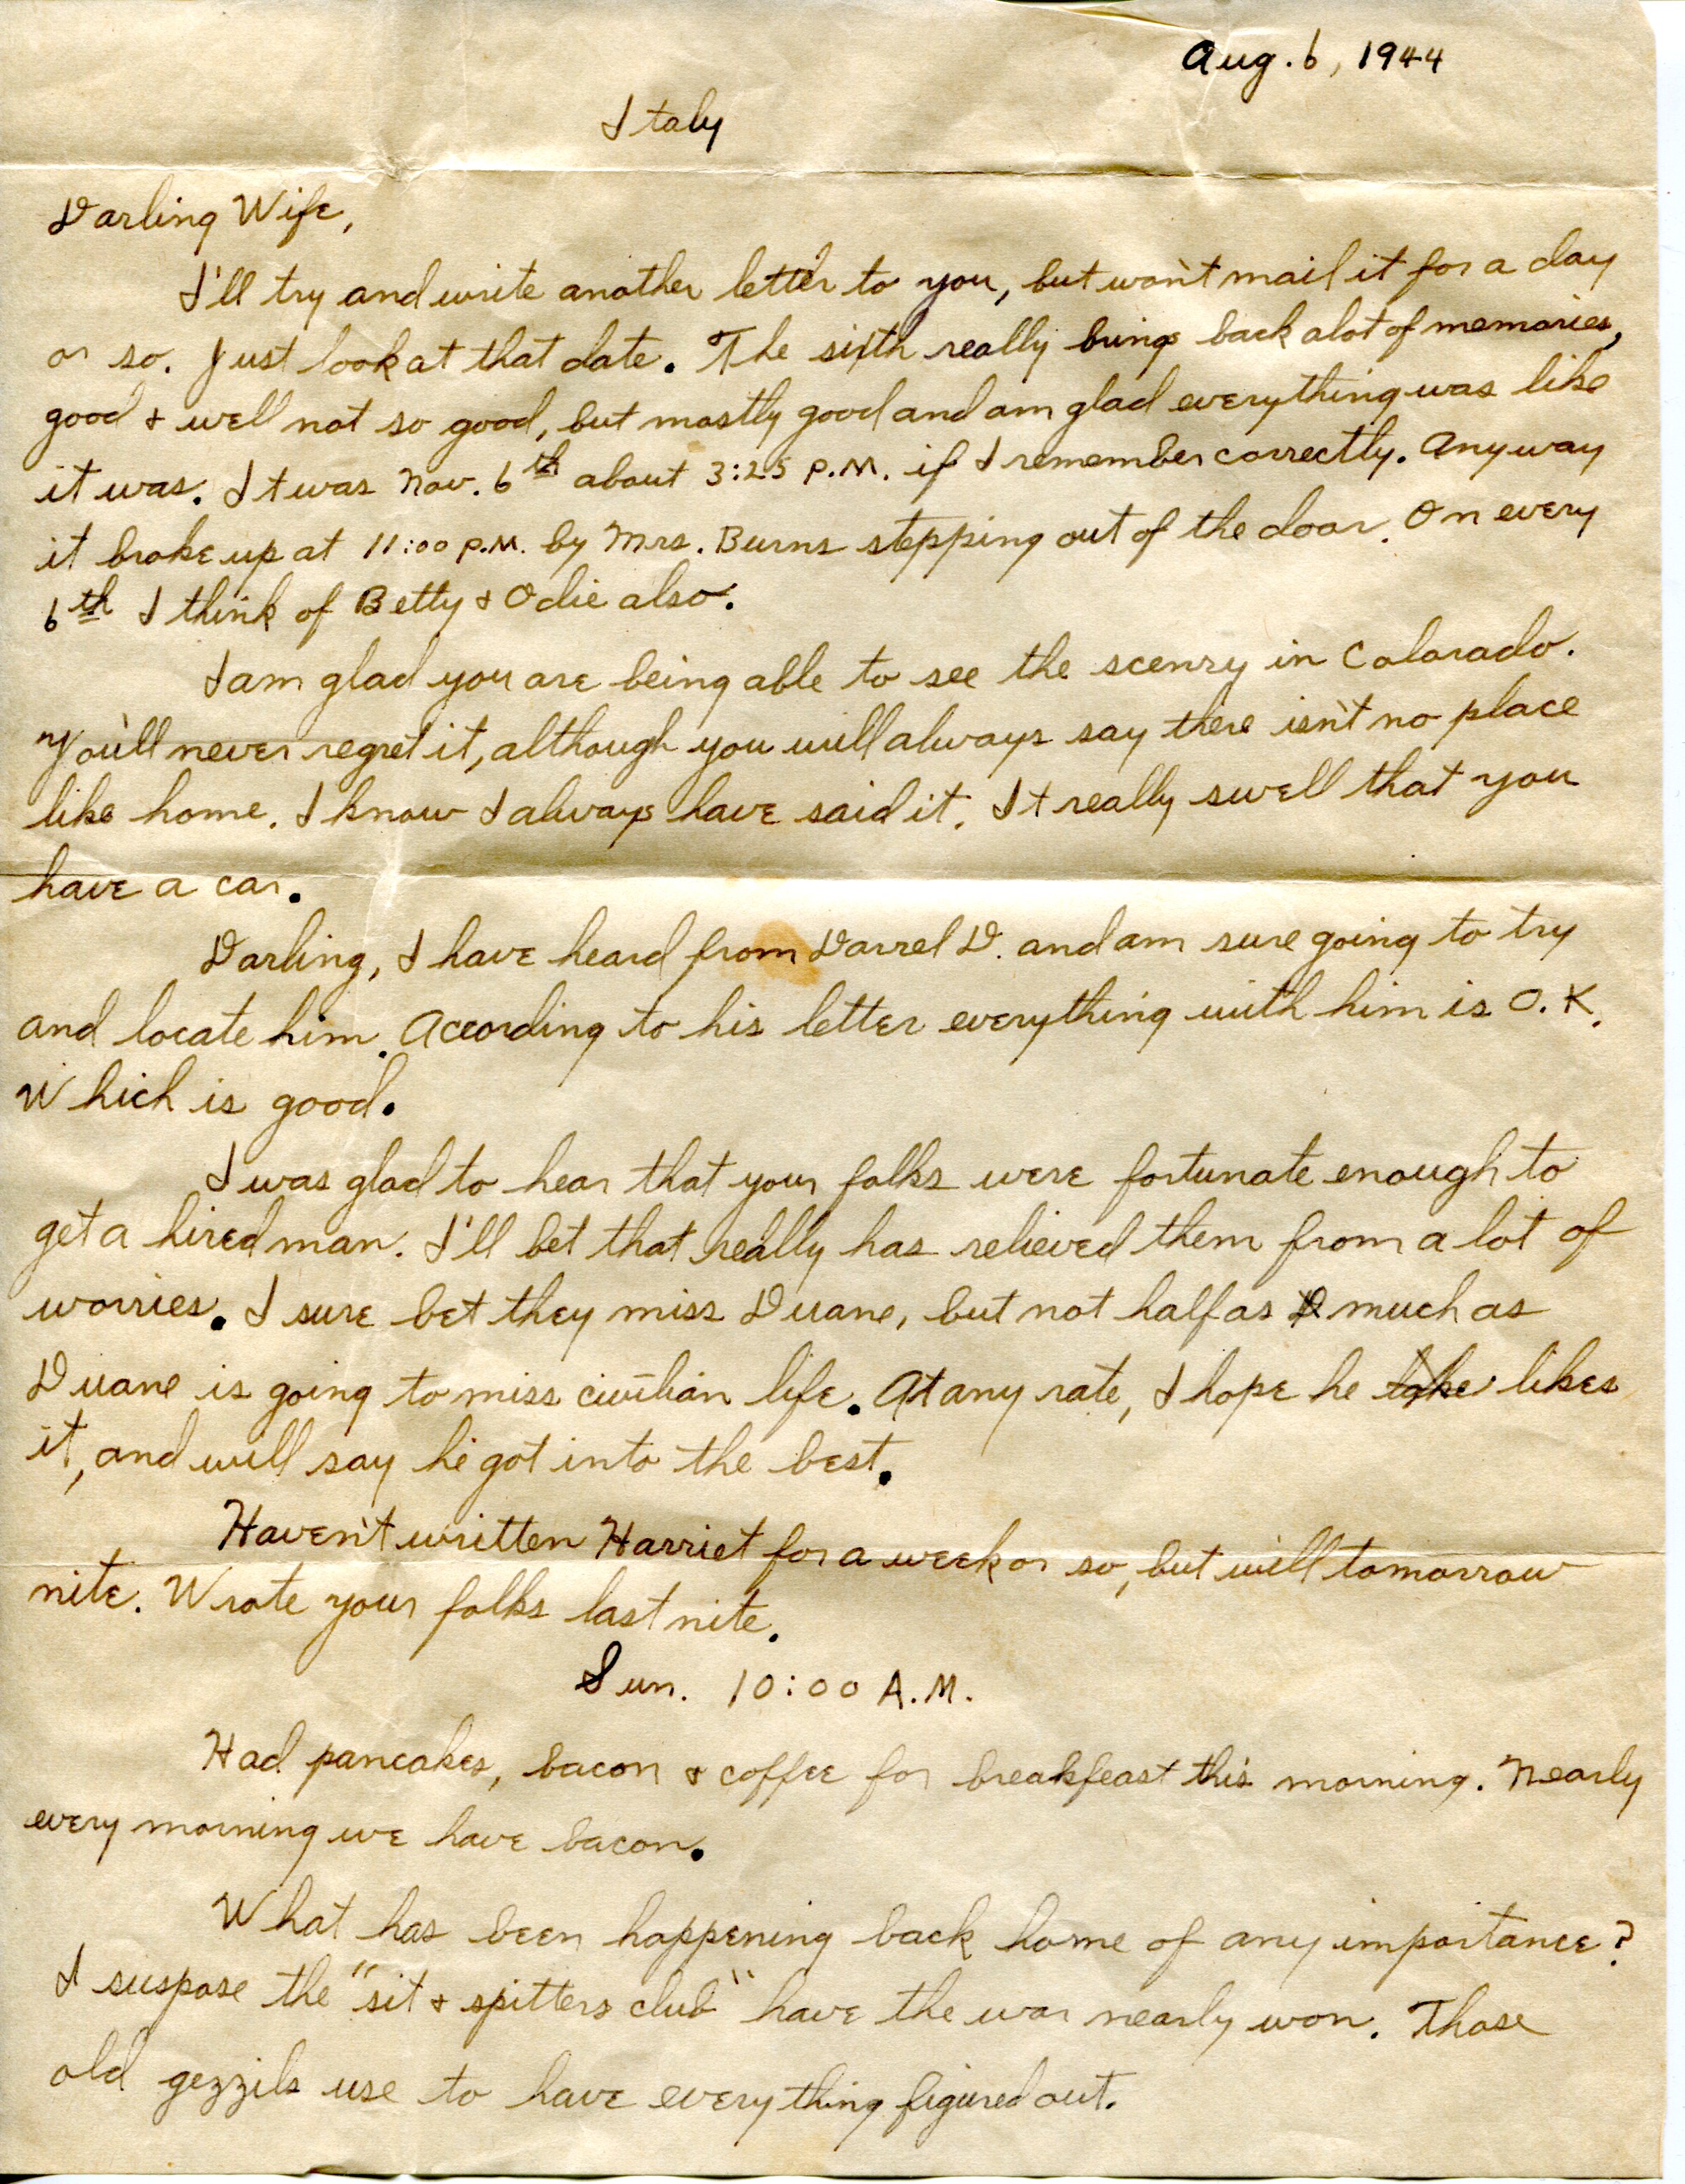 Aug. 6, 1944
Italy
Darling Wife,
I'll try and write another letter to you, but won't mail it for a day
or so. Just look at that date. The sixth really brings back alot of memories,
good & well not so good, but mostly good and am glad everything was like
it was. It was Nov. 6th about 3:25 P.M. if I remember correctly. Anyway
it broke up at 11:00 P.M. by Mrs. Burns stepping out of the door. On every
6th I think of Betty & Odie also.
I am glad you are being able to see the scenry in Colorado.
You'll never regret it, although you will always say there isn't no place
like home. I know I always have said it. It really swell that you
have a car.
Darling, I have heard from Darrel D. and am sure going to try
and locate him. According to his letter everything with him is O.K.
Which is good.
I was glad to hear that your folks were fortunate enough to
get a hired man. I'll bet that really has relieved them from a lot of
worries. I sure bet they miss Duane, but not half as much as
Duane is going to miss civilian life. At any rate, I hope he likes
it, and will say he got into the best.
Haven't written Harriet for a week or so, but will tomorrow
nite. Wrote your folks last nite.
Sun. 10:00 A.M.
Had pancakes, bacon & coffee for breakfeast this morning. Nearly
every morning we have bacon.
What has been happening back home of any importance?
I suspose the "sit & spitters club" have the war nearly won. Those
old gezzils use to have everything figured out.